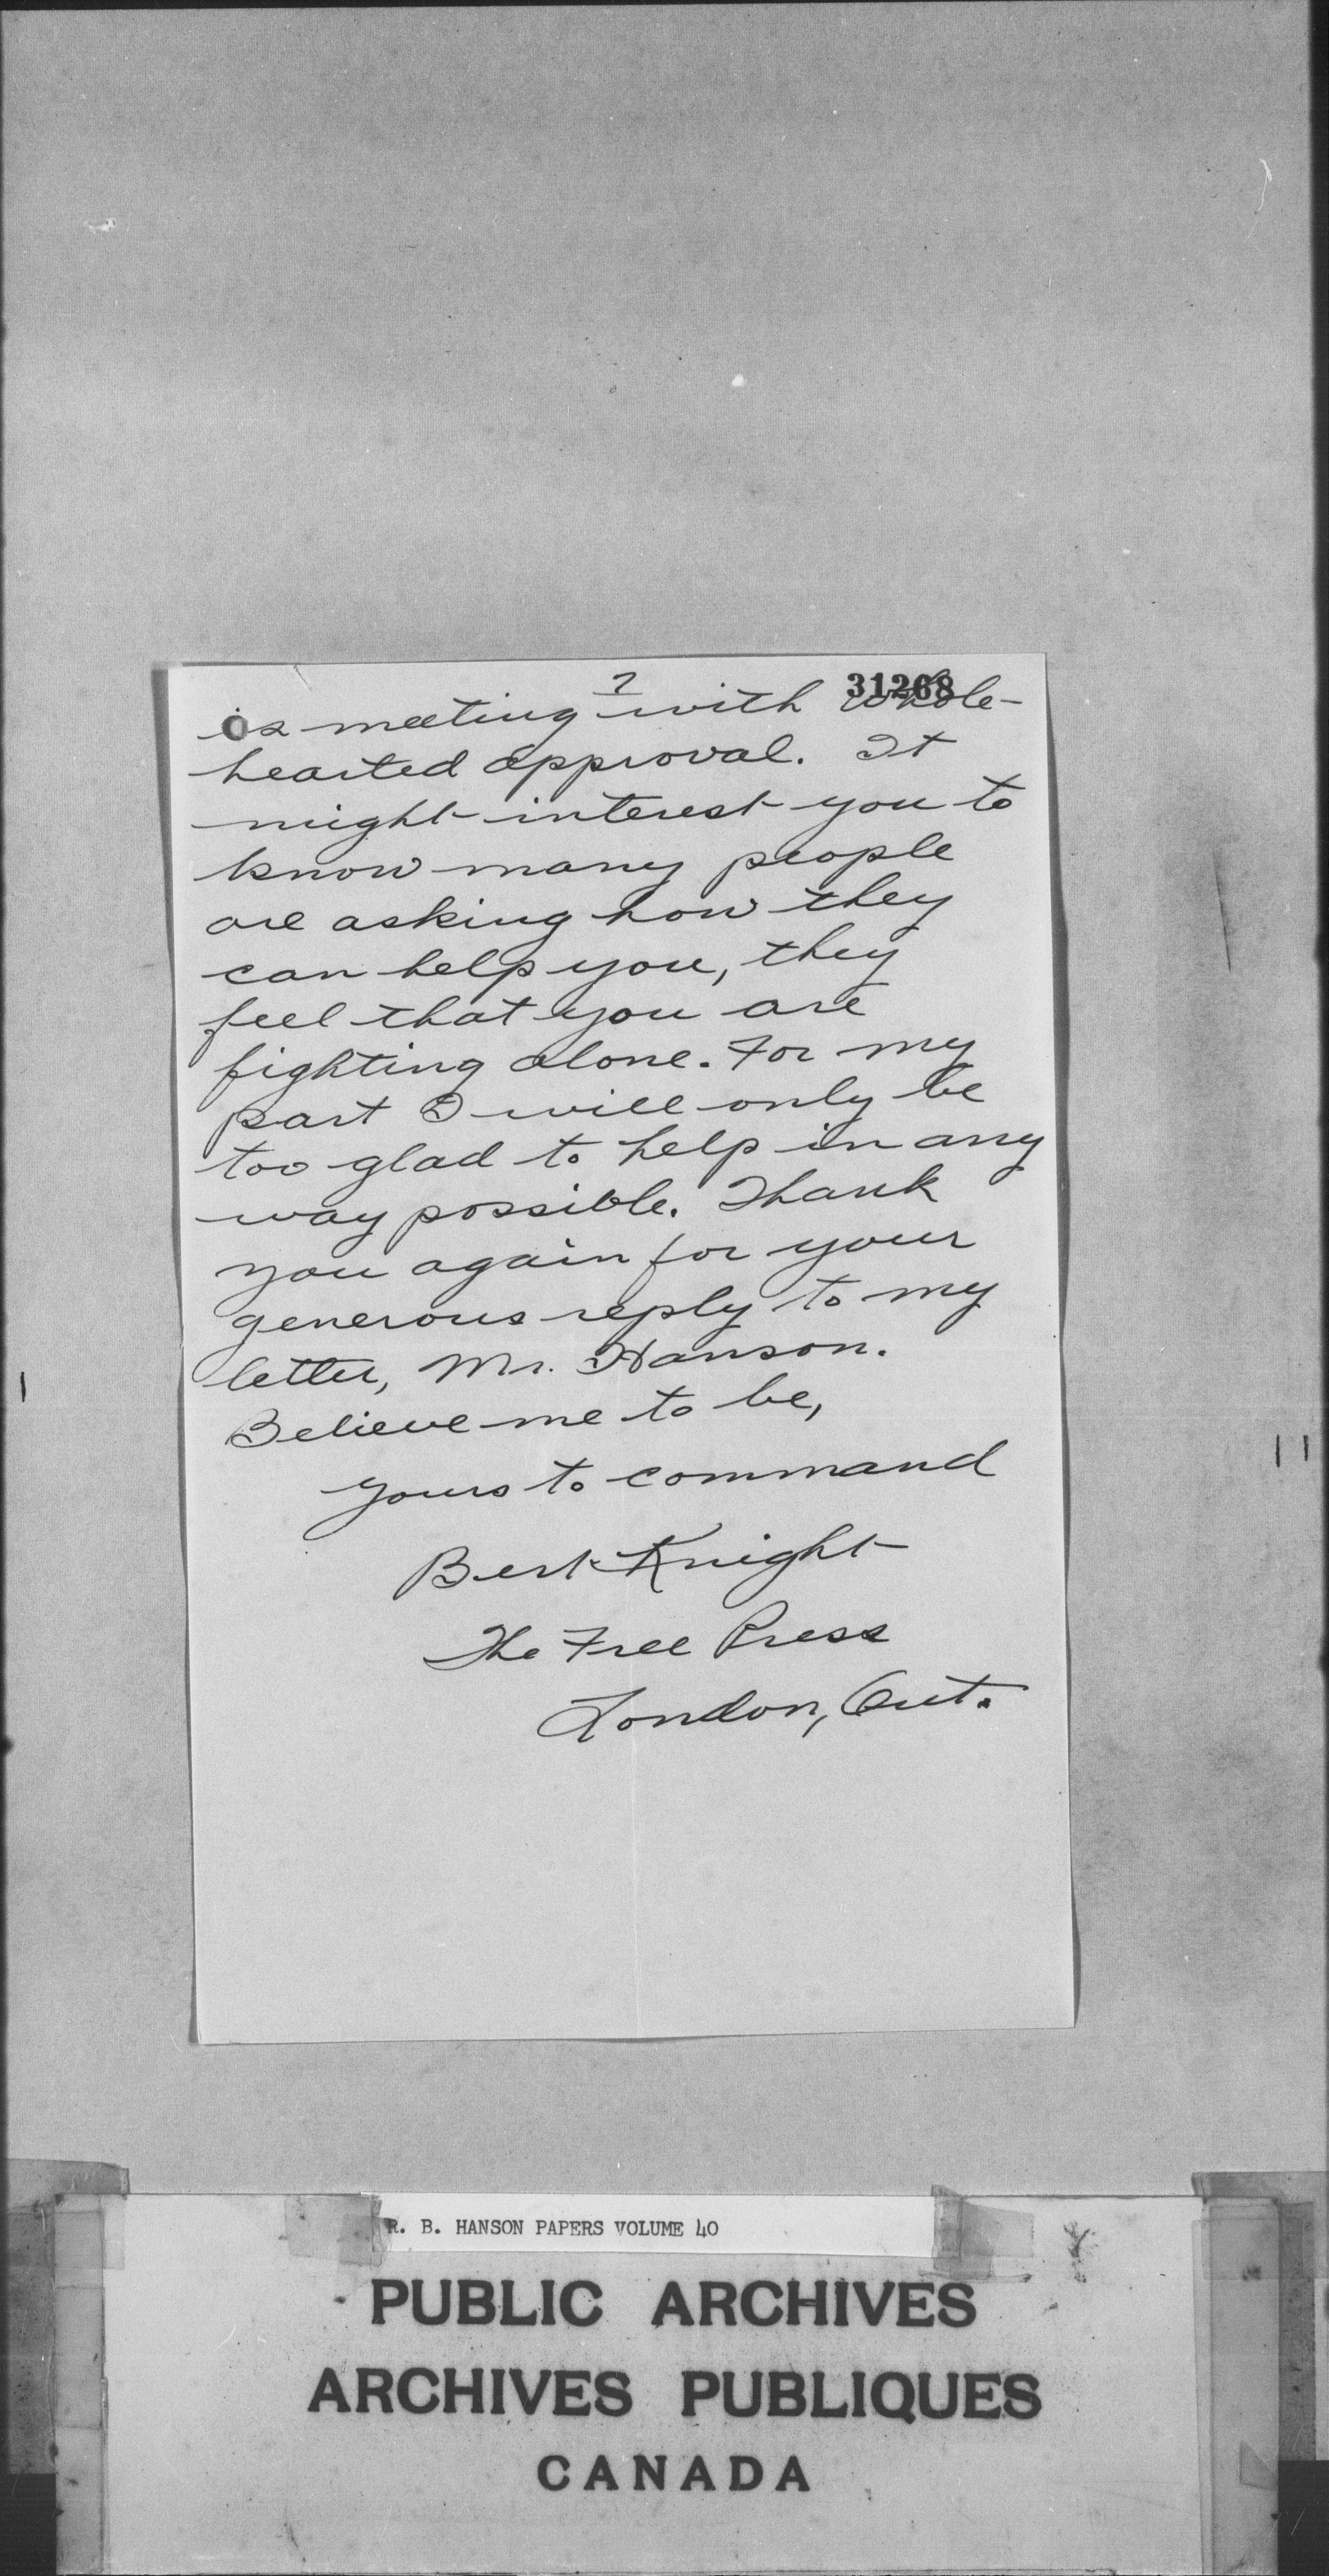 2
31268
is meeting with whole-
hearted approval. It
might interest you to
know many people
are asking how they
can help you, they
feel that you are
fighting alone. For my
part I will only be
too glad to help in any
way possible. Thank
you again for your
generous reply to my
letter, Mr. Hanson.
Believe me to be,
yours to command
Bert Knight
The Free Press
London, Ont.
R. B. HANSON PAPERS VOLUME 40
PUBLIC ARCHIVES
ARCHIVES PUBLIQUES
CANADA